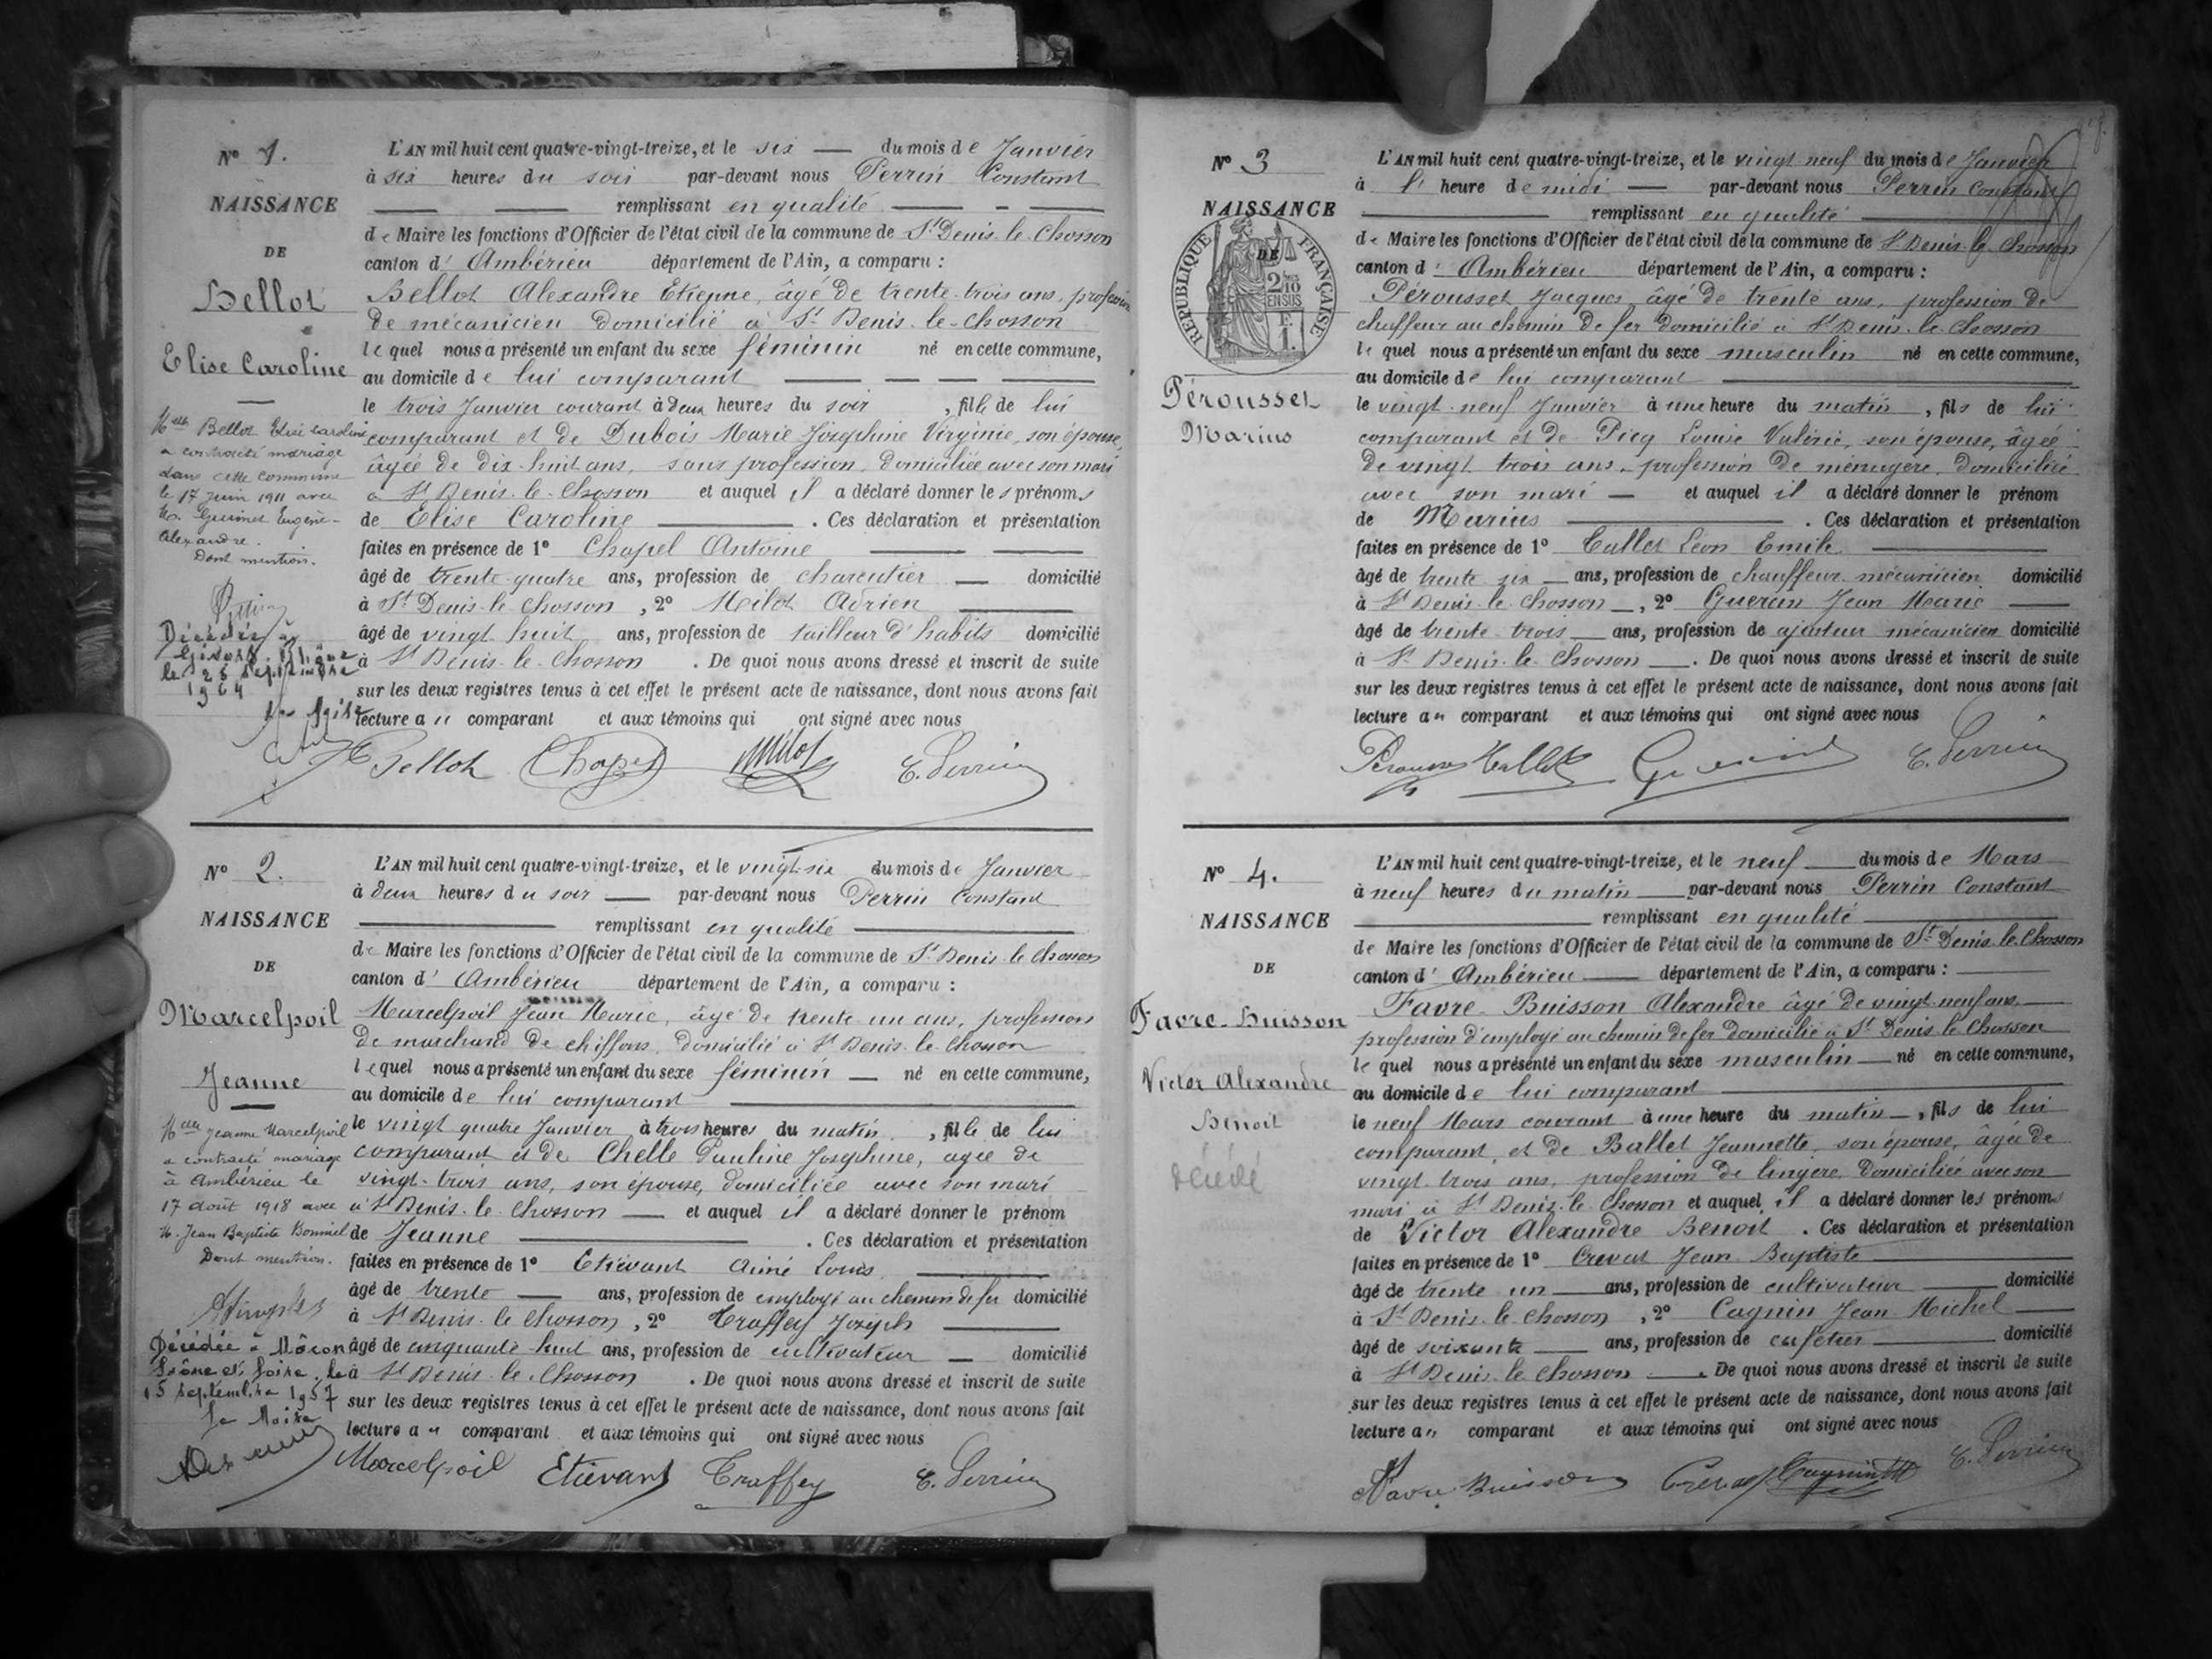 N° 1.
NAISSANCE
DE
Bellot
Elise Caroline
Melle Bellot Elise Caroline
a contracté mariage
dans cette commune
le 17 Juin 1911 avec
M. Guinet Eugène-
Alexandre.
Dont mention.
Perrin
Décédée à
Givors, Rhône
le 26 Septembre
1964
L'AN mil huit cent quatre-vingt-treize, et le six — du mois de Janvier
à six heures du soir par-devant nous Perrin Constant
remplissant en qualité
de Maire les fonctions d'Officier de l'état civil de la commune de St Denis-le-Chosson
canton d' Ambérieu département de l'Ain, a comparu :
Bellot Alexandre Etienne, âgé de trente-trois ans, profession
de mécanicien domicilié à St Denis-le-Chosson
lequel nous a présenté un enfant du sexe féminin né en cette commune,
au domicile de lui comparant
le trois Janvier courant à deux heures du soir , fille de lui
comparant et de Dubois Marie Joséphine Virginie, son épouse,
âgée de dix-huit ans, sans profession, domiciliée avec son mari
à St Denis-le-Chosson et auquel il a déclaré donner les prénoms
de Elise Caroline . Ces déclaration et présentation
faites en présence de 1° Chapel Antoine
âgé de trente-quatre ans, profession de charentier — domicilié
à St Denis-le-Chosson , 2° Milot Adrien
âgé de vingt huit ans, profession de tailleur d'habits domicilié
à St Denis-le-Chosson . De quoi nous avons dressé et inscrit de suite
sur les deux registres tenus à cet effet le présent acte de naissance, dont nous avons fait
lecture au comparant et aux témoins qui ont signé avec nous
Bellot Chapel Milot C. Perrin
N° 2.
NAISSANCE
DE
Marcelpoil
Jeanne
Melle Jeanne Marcelpoil
a contracté mariage
à Ambérieu le
17 août 1918 avec
M. Jean Baptiste Bonniel
Dont mention.
Décédée à Mâcon
Saône et Loire, le
15 septembre 1957
Le Maire
L'AN mil huit cent quatre-vingt-treize, et le vingt-six du mois de Janvier
à deux heures du soir — par-devant nous Perrin Constant
remplissant en qualité
de Maire les fonctions d'Officier de l'état civil de la commune de St Denis-le-Chosson
canton d' Ambérieu département de l'Ain, a comparu :
Marcelpoil Jean Marie, âgé de trente-un ans, profession
de marchand de chiffons, domicilié à St Denis-le-Chosson
lequel nous a présenté un enfant du sexe féminin — né en cette commune,
au domicile de lui comparant
le vingt quatre Janvier à trois heures du matin , fille de lui
comparant et de Chelle Pauline Joséphine, agée de
vingt-trois ans, son épouse, domiciliée avec son mari
à St Denis-le-Chosson — et auquel il a déclaré donner le prénom
de Jeanne . Ces déclaration et présentation
faites en présence de 1° Etiévant Aimé Louis
âgé de trente — ans, profession de employé au chemin de fer domicilié
à St Denis-le-Chosson , 2° Traffey Joseph
âgé de cinquante-huit ans, profession de cultivateur — domicilié
à St Denis-le-Chosson . De quoi nous avons dressé et inscrit de suite
sur les deux registres tenus à cet effet le présent acte de naissance, dont nous avons fait
lecture au comparant et aux témoins qui ont signé avec nous
Marcelpoil Etievant Traffey C. Perrin
N° 3
NAISSANCE
DE
REPUBLIQUE FRANÇAISE
2/10
EN SUS
F.
1.
Pérousset
Marius
L'AN mil huit cent quatre-vingt-treize, et le vingt-neuf du mois de Janvier
à l' heure de midi — par-devant nous Perrin Constant
remplissant en qualité
de Maire les fonctions d'Officier de l'état civil de la commune de St Denis-le-Chosson
canton d' Ambérieu département de l'Ain, a comparu :
Pérousset Jacques, âgé de trente ans, profession de
chauffeur au chemin de fer domicilié à St Denis-le-Chosson
lequel nous a présenté un enfant du sexe masculin né en cette commune,
au domicile de lui comparant
le vingt-neuf Janvier à une heure du matin , fils de lui
comparant et de Picq Louise Valérie, son épouse, âgée
de vingt trois ans, profession de ménagère, domiciliée
avec son mari — et auquel il a déclaré donner le prénom
de Marius . Ces déclaration et présentation
faites en présence de 1° Callet Léon Emile
âgé de trente six — ans, profession de chauffeur-mécanicien domicilié
à St Denis-le-Chosson —, 2° Guerin Jean Marie
âgé de trente-trois — ans, profession de ajusteur mécanicien domicilié
à St Denis-le-Chosson —. De quoi nous avons dressé et inscrit de suite
sur les deux registres tenus à cet effet le présent acte de naissance, dont nous avons fait
lecture au comparant et aux témoins qui ont signé avec nous
C. Perrin
N° 4.
NAISSANCE
DE
Favre-Buisson
Victor Alexandre
Benoit
Décédé
L'AN mil huit cent quatre-vingt-treize, et le neuf — du mois de Mars
à neuf heures du matin — par-devant nous Perrin Constant
remplissant en qualité
de Maire les fonctions d'Officier de l'état civil de la commune de St Denis-le-Chosson
canton d' Ambérieu — département de l'Ain, a comparu :
Favre-Buisson Alexandre âgé de vingt-neuf ans,
profession d'employé au chemin de fer domicilié à St Denis-le-Chosson
lequel nous a présenté un enfant du sexe masculin — né en cette commune,
au domicile de lui comparant
le neuf Mars courant à une heure du matin —, fils de lui
comparant, et de Ballet Jeannette, son épouse, âgée de
vingt-trois ans, profession de lingère, domiciliée avec son
mari à St Denis-le-Chosson et auquel il a déclaré donner les prénoms
de Victor Alexandre Benoit . Ces déclaration et présentation
faites en présence de 1° Crevat Jean-Baptiste
âgé de trente un — ans, profession de cultivateur — domicilié
à St Denis-le-Chosson , 2° Cagnin Jean Michel
âgé de soixante — ans, profession de cafetier — domicilié
à St Denis-le-Chosson —. De quoi nous avons dressé et inscrit de suite
sur les deux registres tenus à cet effet le présent acte de naissance, dont nous avons fait
lecture au comparant et aux témoins qui ont signé avec nous
Favre Buisson Crevat Cagnin C. Perrin